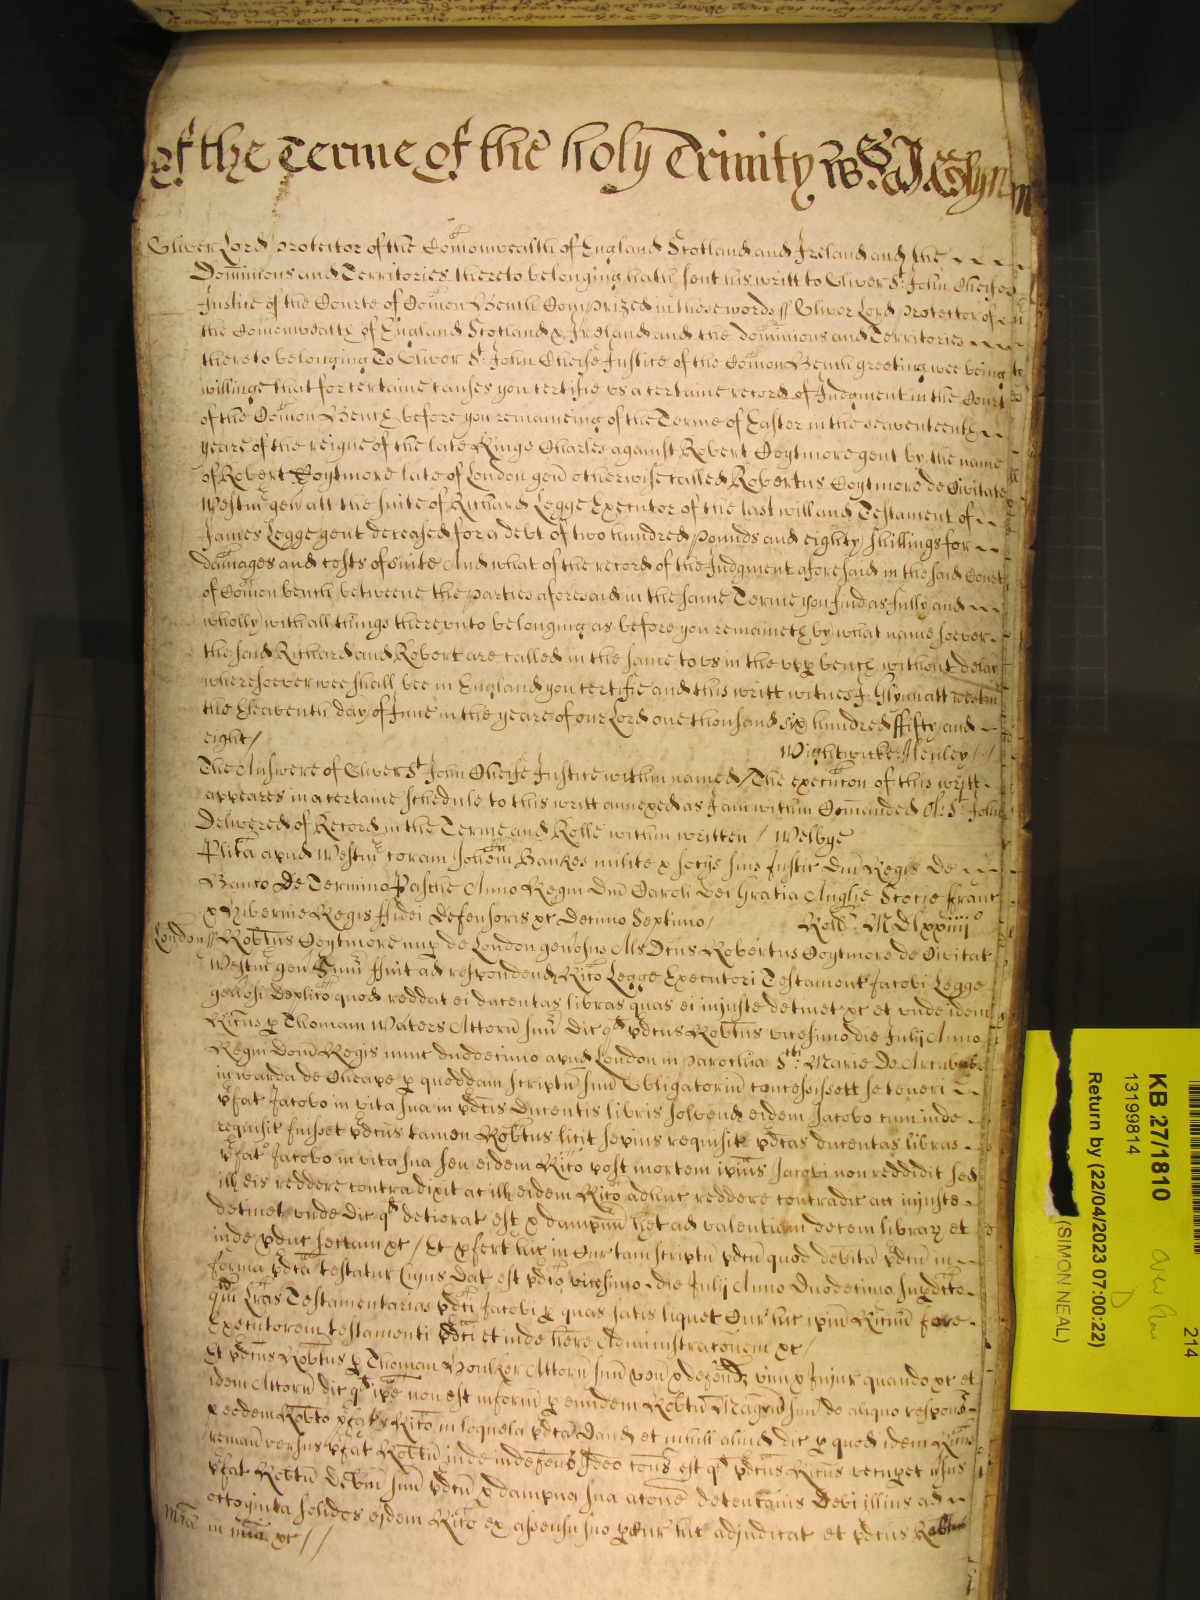 of the Terme of the holy Trinity ws. J. Glynn
Oliver Lord protector of the Comonwealth of England Scotland and Ireland and the
Dominions and Territories thereto belonging hath sent his writt to Oliver St. John Cheife
Justice of the Courte of Comon Bench Comprized in these words // Oliver Lord protector of
the Comonwealth of England Scotland & Ireland and the Dominions and Territories
thereto belonging To Oliver St. John Cheife Justice of the Comon Bench greeting wee being
willinge that for certaine causes you certifie vs a certaine record of Judgment in the Court
of the Comon Bench before you remaineing of the Terme of Easter in the seaventeenth
yeare of the reigne of the late Kinge Charles against Robert Coytmore gent by the name
of Robert Coytmore late of London gen otherwise called Robertus Coytmore de Civitate
Westm gen att the suite of Richard Legge Executor of the last will and Testament of
James Legge gent deceased for a debt of two hundred pounds and eighty shillings for
damages and costs of suite And what of the record of the Judgment aforesaid in the said Court
of Comon bench betweene the parties aforesaid in the same Terme you find as fully and
wholly with all things therevnto belonging as before you remaineth by what name soever
the said Richard and Robert are called in the same to vs in the vpp bench without delay
wheresoever wee shall bee in England you certifie and this writt witnes J. Glynn att westm
the Eleaventh day of June in the yeare of our Lord one thousand six hundred ffifty and
eight / Wightwicke: Henley //
The Answere of Oliver St John Cheife Justice within named / The execucon of this writt
appeares in a certaine schedule to this writt annexed as I am within Comanded Ol: St John
Delivered of Record in the Terme and Rolle within written / Welbye
Plita apud Westm coram Johem Bankes milite & socijs suis Justic Dni Regis de
Banco De Termino Pasche Anno Regni Dni Caroli dei Gratia Anglie Scocie Franc
& Hibernie Regis fidei Defensoris &c Decimo Septimo / Roll. MDlxxiiijo
London // Robtus Coytmore nup de London genosus Als Dcus Robertus Coytmore de Civitat
Westm gen Sum fuit ad respondend Rico Legge Executori Testament Jacobi Legge
genosi Deplito quod reddat ei ducentas libras quas ei injuste detinet &c et vnde idem
Ricus p Thomam Waters Attorn suu dic qd pdcus Robtus vicesimo die Julij Anno
Regni Domi Regis nunc duodecimo apud London in parochia Ste: Marie De Arcubus
in warda de Cheape p quoddam scriptu suu Obligatoriu concessissett se teneri
pfat Jacobo in vita sua in pdcis Ducentis libris solvend eidem Jacobo cum inde
requisit fuisset pdcus tamen Robtus licit sepius requisit pdcas ducentas libras
pfat Jacobo in vita sua seu eidem Rico post mortem ipius Jacobi non reddidit sed
ill eis reddere contradixit ac ill eidem Rico adhuc reddere contradic ac injuste
detinet vnde dic qd deteriorat est & dampnu het ad valentiam decem librar et
inde pduc sectam &c / Et pfert hic in Cur tam scriptu pdcu quod debitu pdcu in
forma pdca testatur Cujus Dat est pdco vicesimo die Julij Anno Duodecimo supdcto
qm Lras Testamentarias pdci Jacobi p quas satis liquet Cur hic ipm Ricum fore
Executorem testamenti pdci et inde here Administraconem &c /
Et pdcus Robtus p Thomam Bonker Attorn suu ven & defend vim & Injur quando &c et
idem Attorn dic qd ipe non est inform p eundem Robtu Magrm suu de aliquo respons
p eodem Robto pfat Rico in loquela pdca dand et nihill aliud dic p quod idem Ricus
reman versus pfat Robtu inde indefens Ideo cons est qd pdcus Ricus recupet vsus
pfat Robtu debm suu pdcu & dampna sua acone detenconis debi illius ad
octoginta solidos eidem Rico ex assensu suo p Cur hic adjudicat et pdcus Robtus
mia in mia &c //
KB 27/1810
13199814
Return by (22/04/2023 07:00:22)
(SIMON NEAL)
214
D